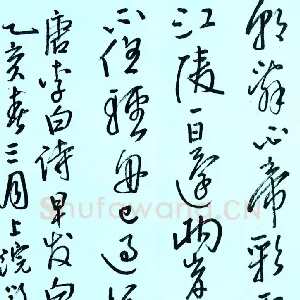 朝辭白帝彩
江陵一日還兩岸
不住輕舟已過
唐李白詩早發白
乙亥春三月上浣
Shufawang.CN